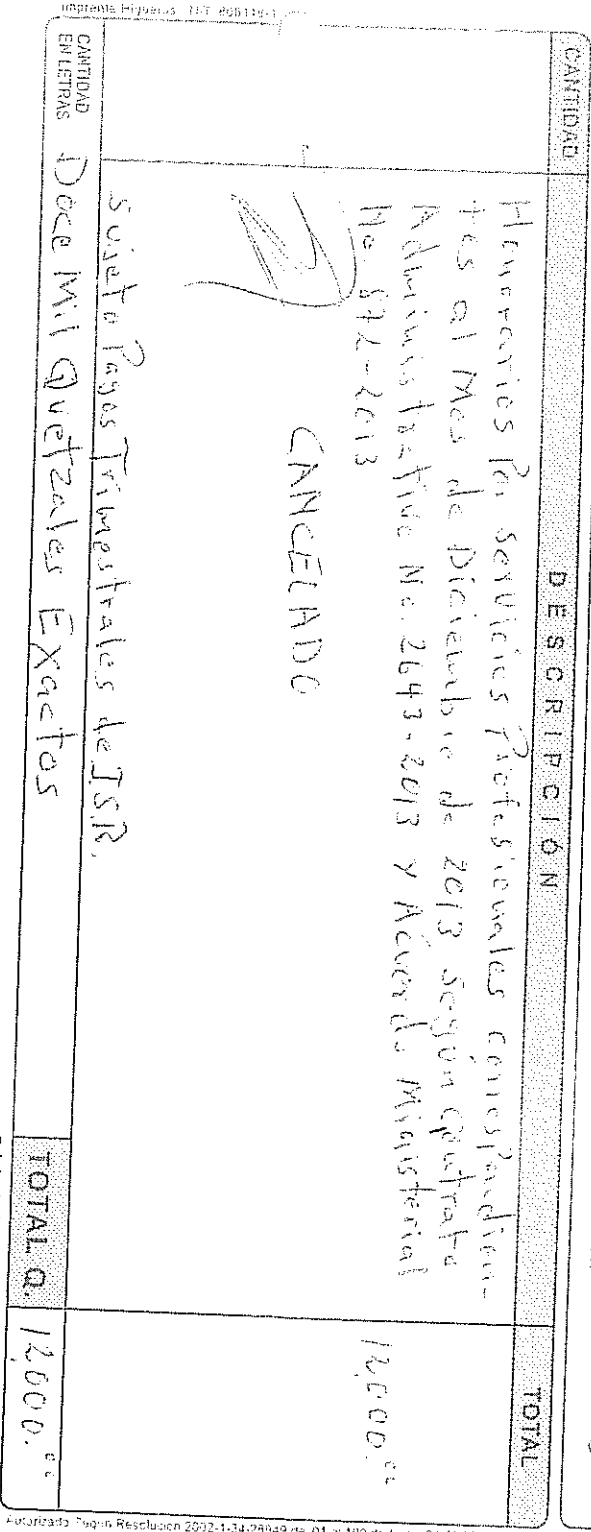 CANTIDAD DESCRIPCIÓN TOTAL
Honorarios Por Servicios Profesionales correspondien-
tes al Mes de Diciembre de 2013 según Contrato
Administrativo No. 2643-2013 y Acuerdo Ministerial
No 872-2013 12,000.00
CANCELADO
Sujeto Pagos Trimestrales de I.S.R.
CANTIDAD EN LETRAS Doce Mil Quetzales Exactos TOTAL Q. 12,000.00
Imprenta Higueros
Autorizado Según Resolución 2002-1-34-28949